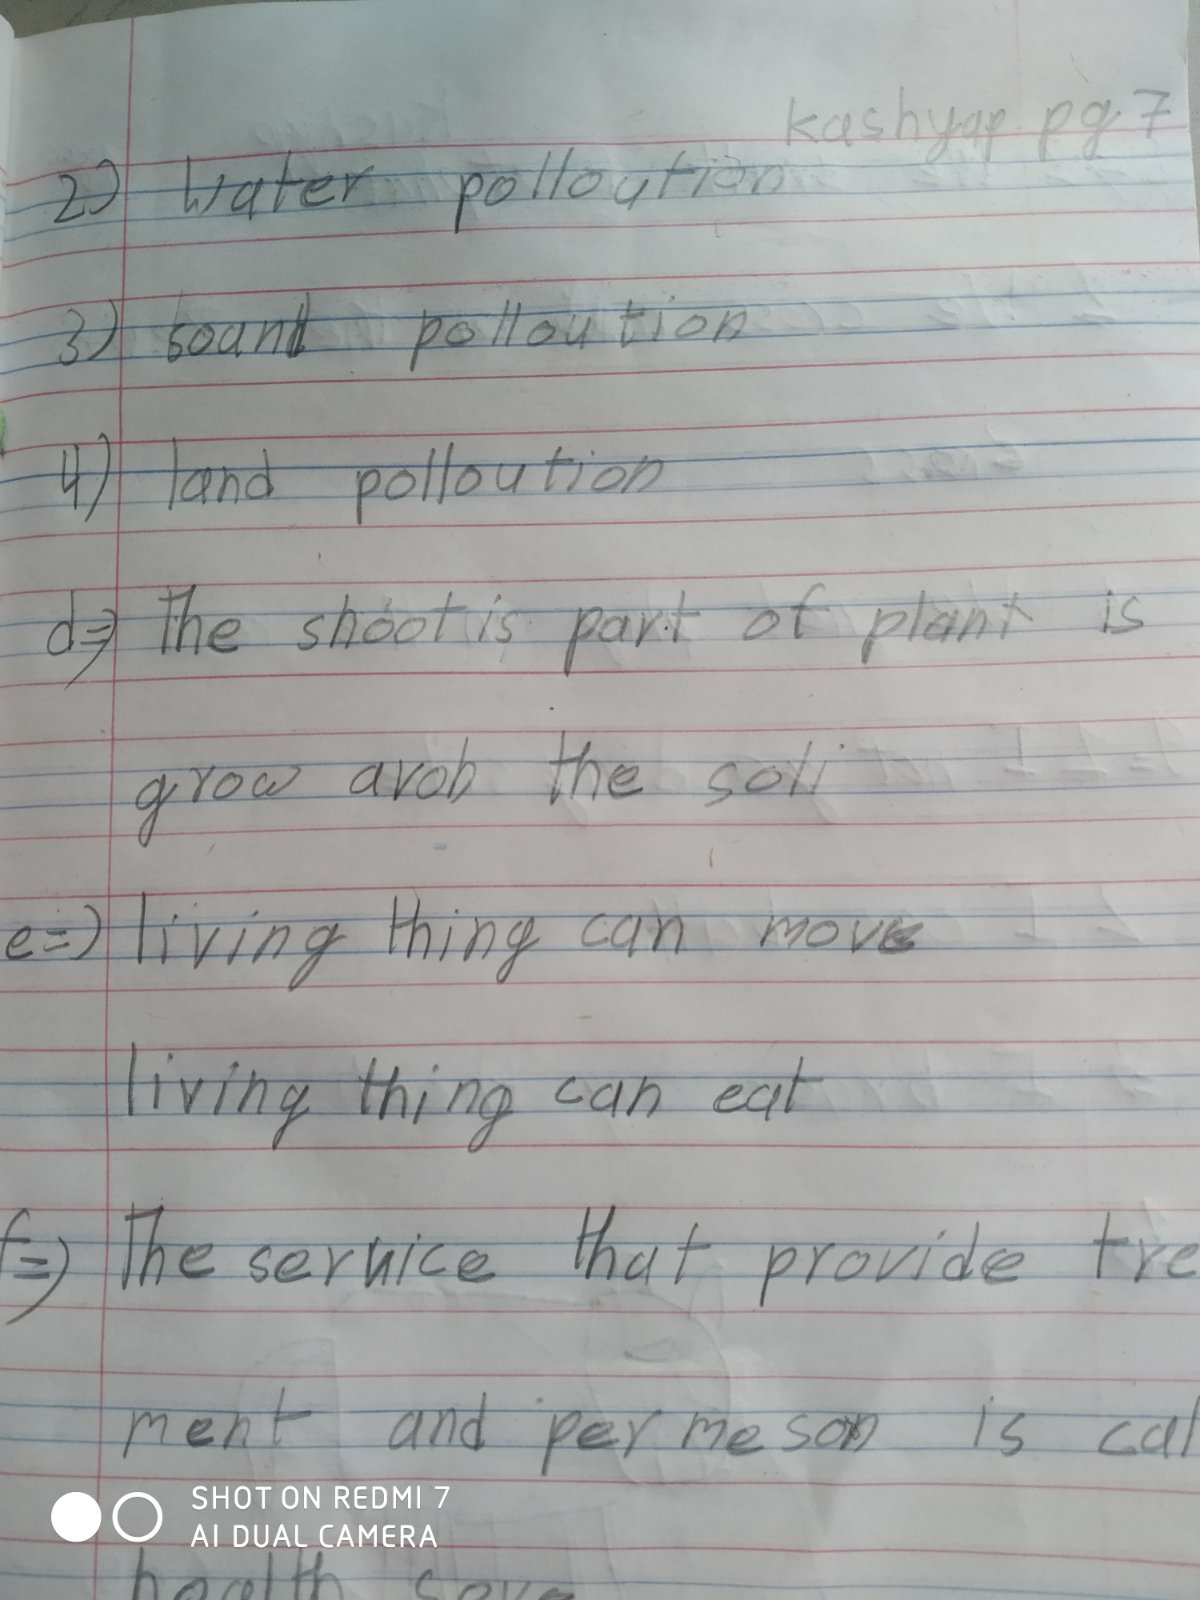 kashyap pg.7
2) Water polloution
3) sound polloution
4) land polloution
d=> The shoot is part of plant is
grow avob the soli
e=) living thing can move
living thing can eat
f=) The service that provide tre
ment and per meson is cal
SHOT ON REDMI 7
AI DUAL CAMERA
health